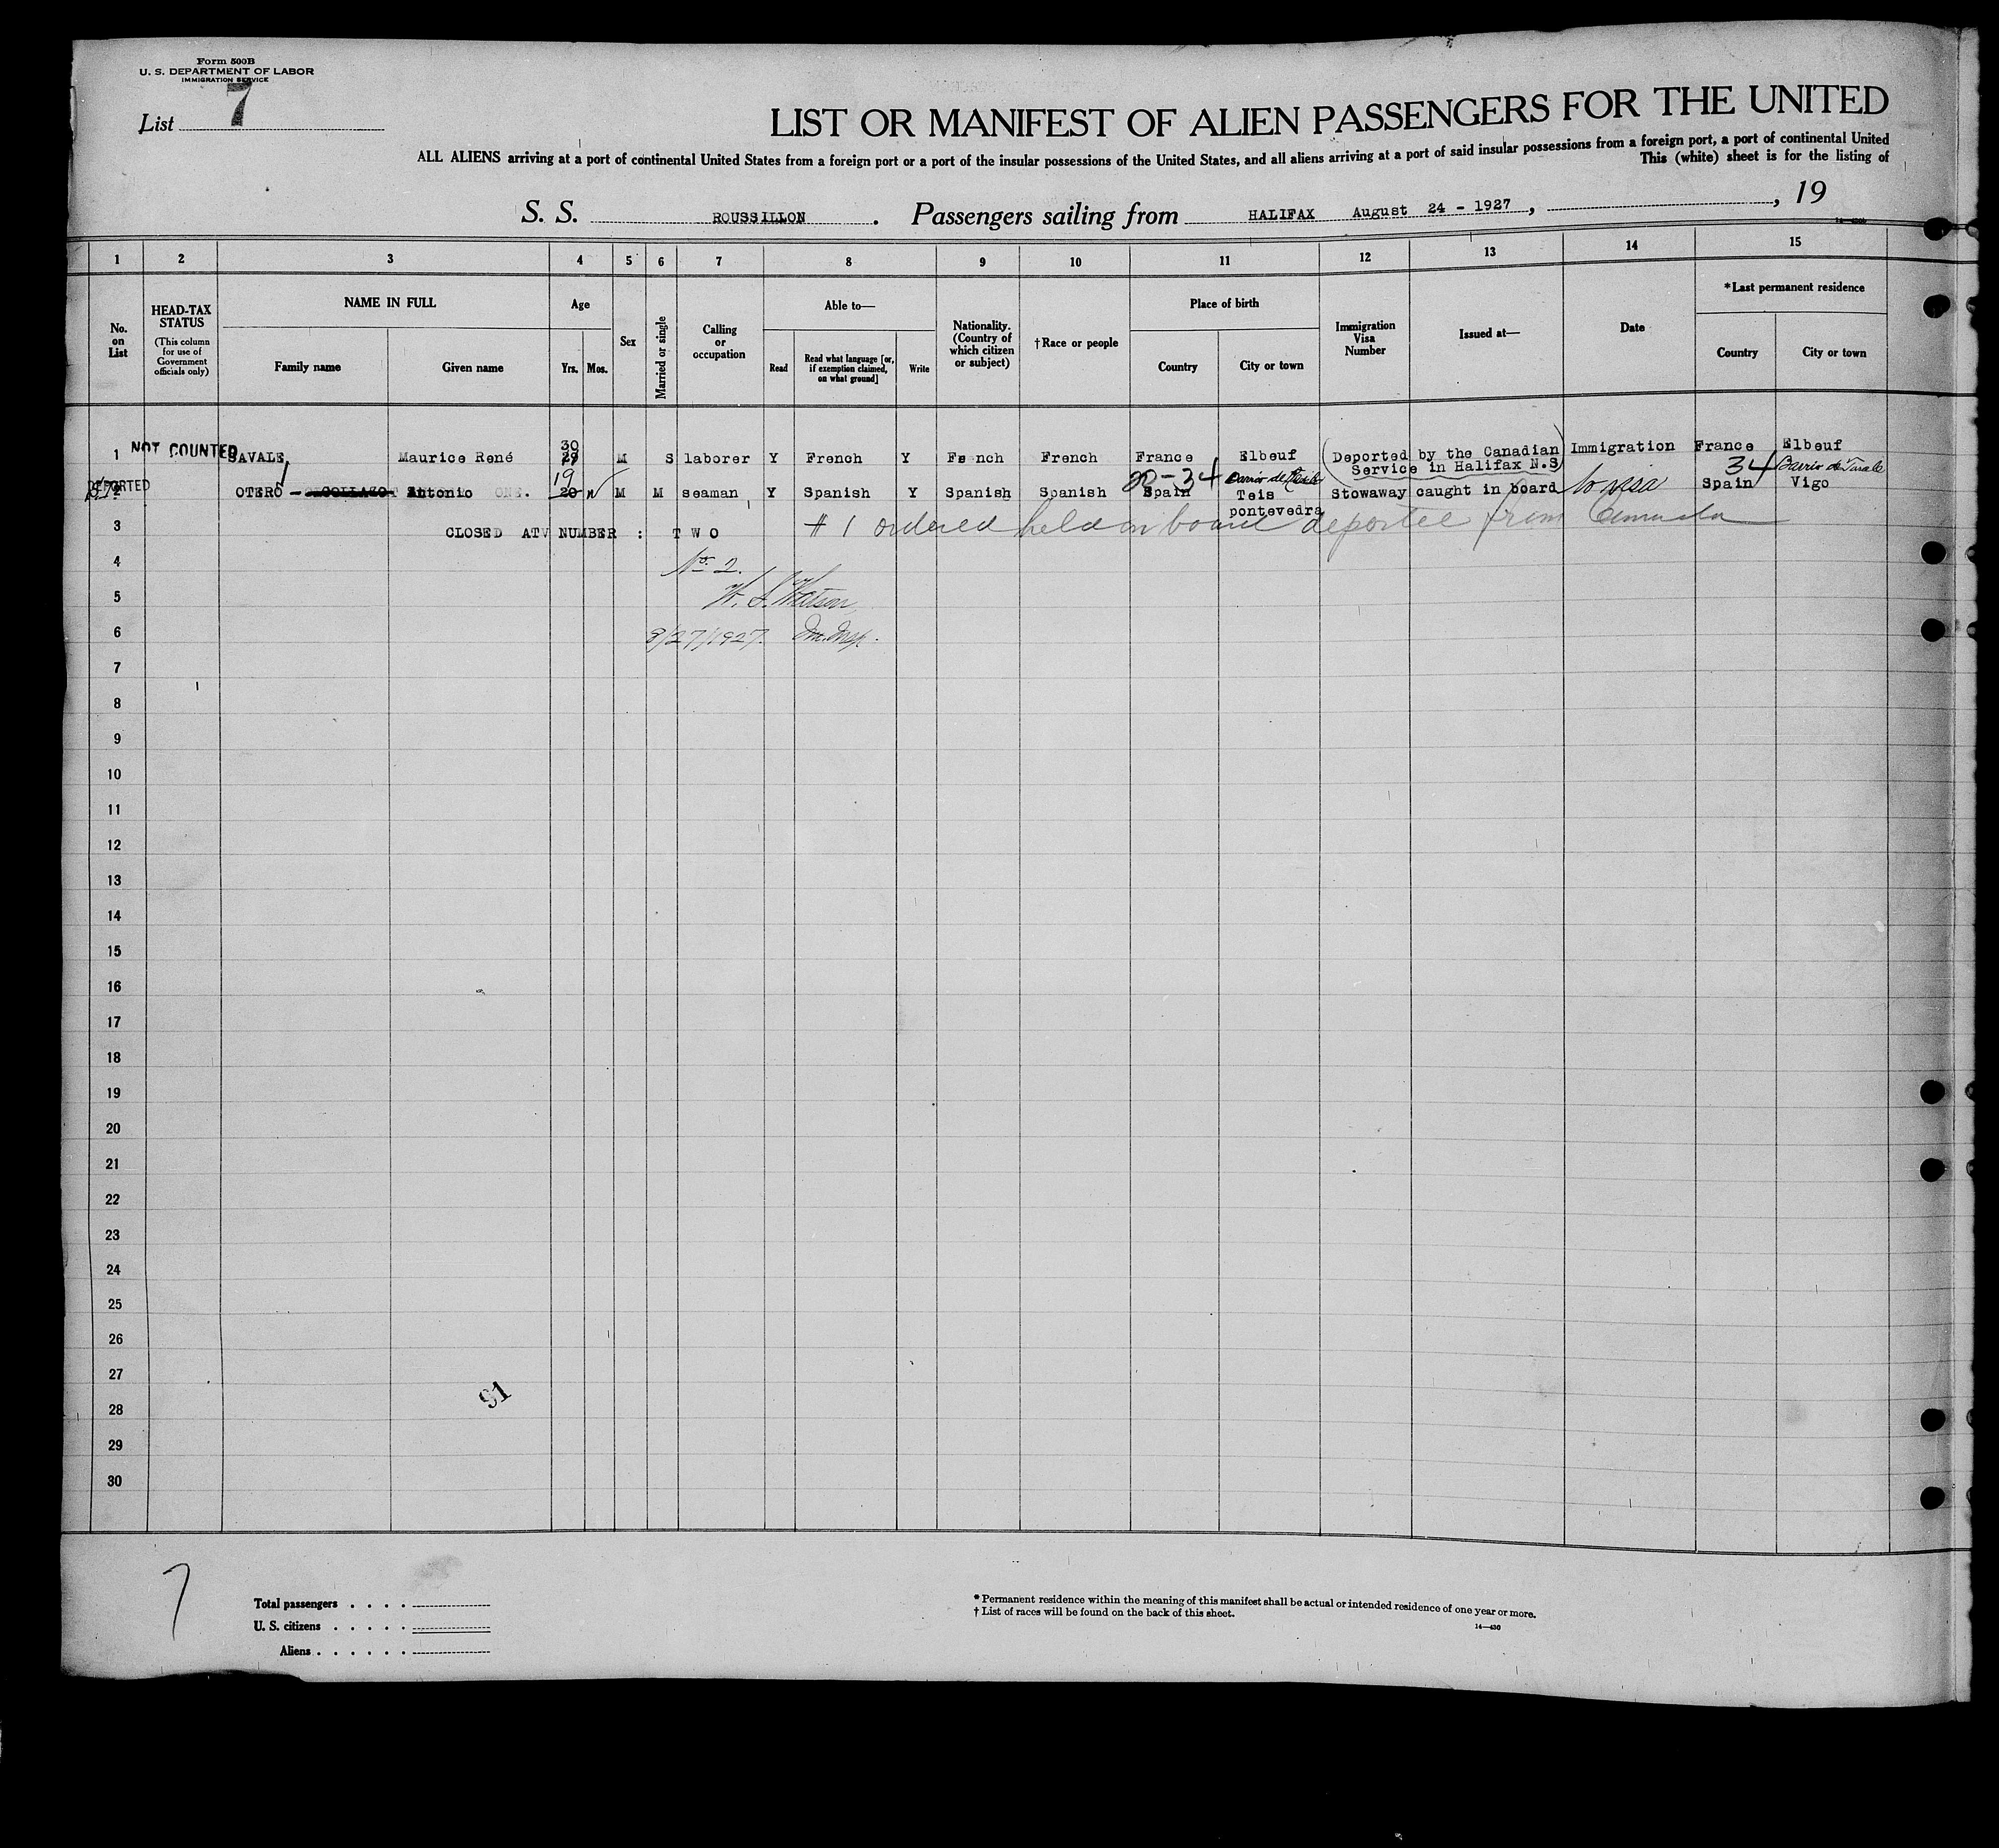 Form 500B
U. S. DEPARTMENT OF LABOR
IMMIGRATION SERVICE
List 7
LIST OR MANIFEST OF ALIEN PASSENGERS FOR THE UNITED
ALL ALIENS arriving at a port of continental United States from a foreign port or a port of the insular possessions of the United States, and all aliens arriving at a port of said insular possessions from a foreign port, a port of continental United
This (white) sheet is for the listing of
S. S. ROUSSILLON . Passengers sailing from HALIFAX August 24 - 1927 , , 19
1 2 3 4 5 6 7 8 9 10 11 12 13 14 15
No. on List
HEAD-TAX STATUS
(This column for use of Government officials only)
NAME IN FULL
Family name
Given name
Age
Yrs.
Mos.
Sex
Married or single
Calling or occupation
Able to—
Read
Read what language [or, if exemption claimed, on what ground]
Write
Nationality. (Country of which citizen or subject)
†Race or people
Place of birth
Country
City or town
Immigration Visa Number
Issued at—
Date
*Last permanent residence
Country
City or town
30
1 NOT COUNTED SAVALE, Maurice René 29 M S laborer Y French Y Fe nch French France Elbeuf (Deported by the Canadian Immigration France Elbeuf
Service in Halifax N.S)
19 34 Barrio de
DEPORTED
2 OTERO - COLLAZO Antonio 20 M M seaman Y Spanish Y Spanish Spanish Spain Teis Stowaway caught in board No visa Spain Vigo
pontevedra
3 # 1 ordered held on board deportee from Canada
CLOSED AT NUMBER : T W O
4 No. 2.
5 W. S. Watson
6 8/27/1927. Im. Insp.
7
8
9
10
11
12
13
14
15
16
17
18
19
20
21
22
23
24
25
26
27
91
28
29
30
7
Total passengers . . . .
U. S. citizens . . . . .
Aliens . . . . . .
* Permanent residence within the meaning of this manifest shall be actual or intended residence of one year or more.
† List of races will be found on the back of this sheet.
14—430